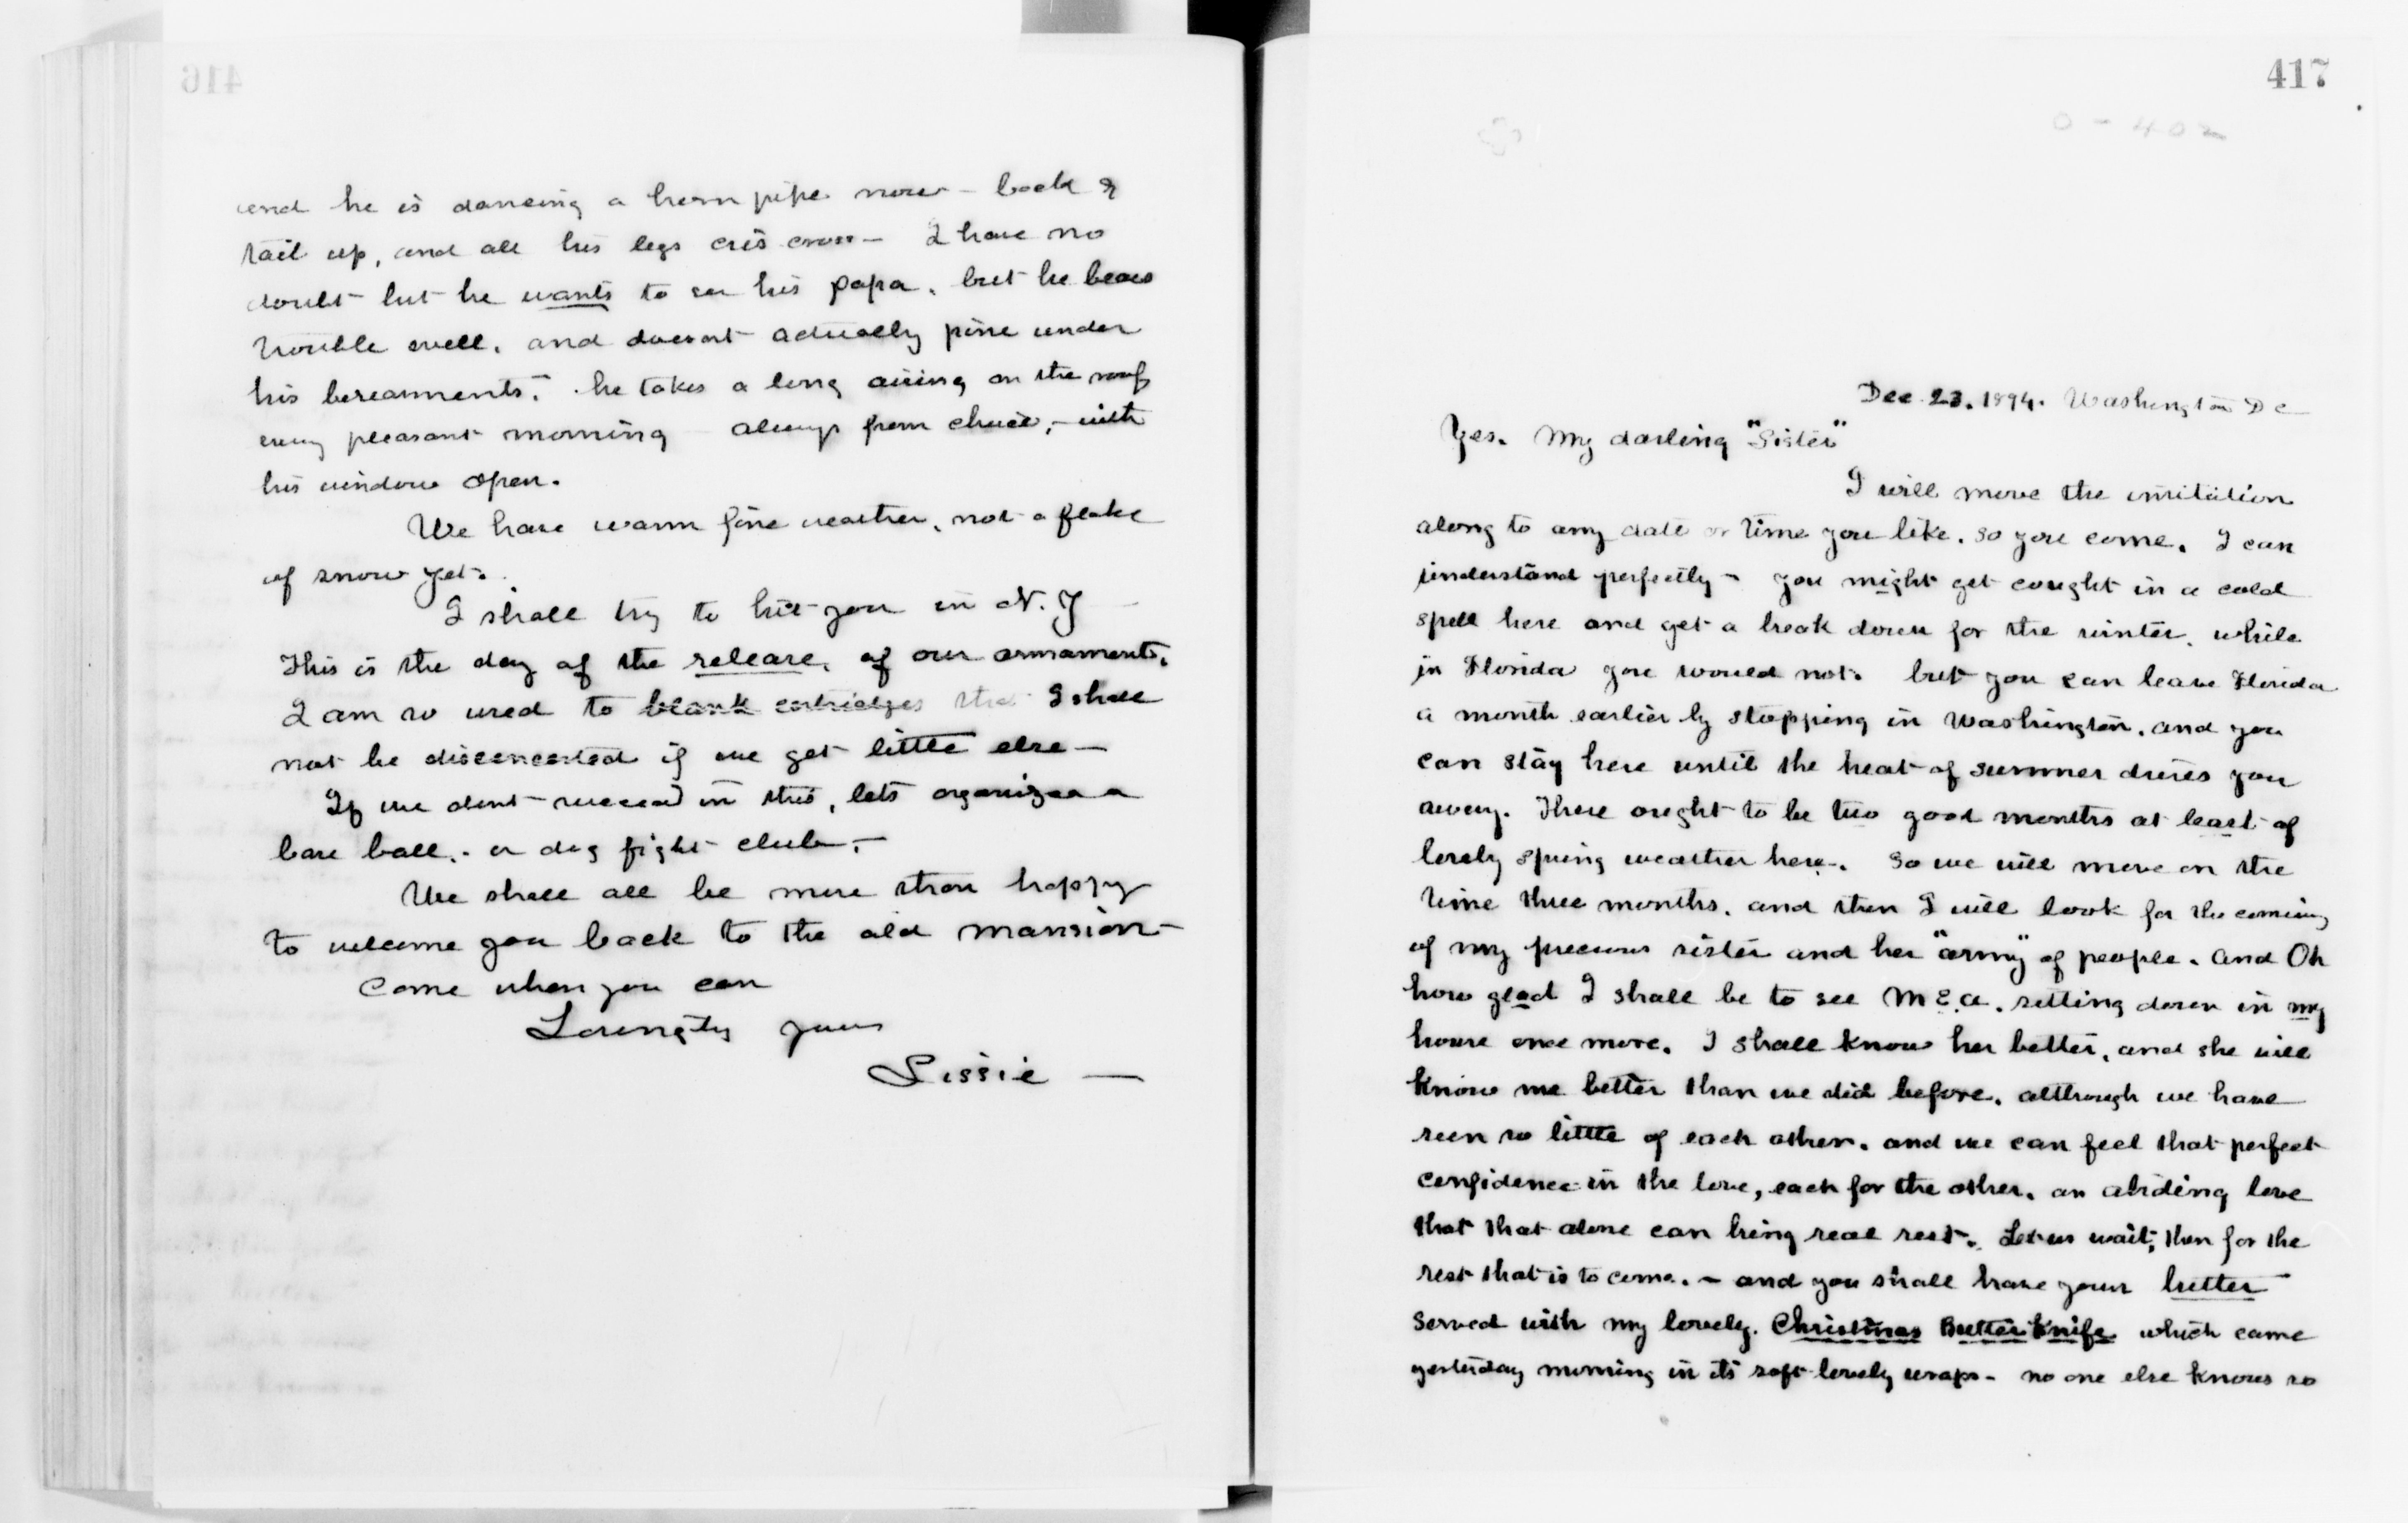 416
and he is dancing a horn pipe now - back &
tail up, and all his legs cris cross - I have no
doubt but he wants to see his papa, but he bears
trouble well, and doesnt actually pine under
his bereavments. he takes a long airing on the roof
every pleasant morning always from choice, - with
his window open.
We have warm fine weather, not a flake
of snow yet.
I shall try to hit you in N. Y
This is the day of the release, of our armaments.
I am so used to blank cartridges that I shall
not be disconcerted if we get little else -
If we dont succeed in this, lets organize a
base ball, - or dog fight club, -
We shall all be more than happy
to welcome you back to the old mansion -
Come when you can
Lovingly yours
Sissie -
417
0 - 402
Dec. 23. 1894. Washington D C
Yes. My darling "Sister"
I will move the invitation
along to any date or time you like. so you come. I can
understand perfectly - you might get caught in a cold
spell here and get a break down for the winter, while
in Florida you would not. but you can leave Florida
a month earlier by stopping in Washington, and you
can stay here until the heat of summer drives you
away. There ought to be two good months at least of
lovely spring weather here -. So we will move on the
time three months, and then I will look for the coming
of my precious sister and her "army" of people. And Oh
how glad I shall be to see M. E. A. setting down in my
house once more. I shall know her better, and she will
know me better than we did before, although we have
seen so little of each other, and we can feel that perfect
confidence in the love, each for the other, an abiding love
that that alone can bring real rest. Let us wait, then for the
rest that is to come. - and you shall have your butter
served with my lovely. Christmas Butter Knife which came
yesterday morning in its soft lovely wraps - no one else knows so